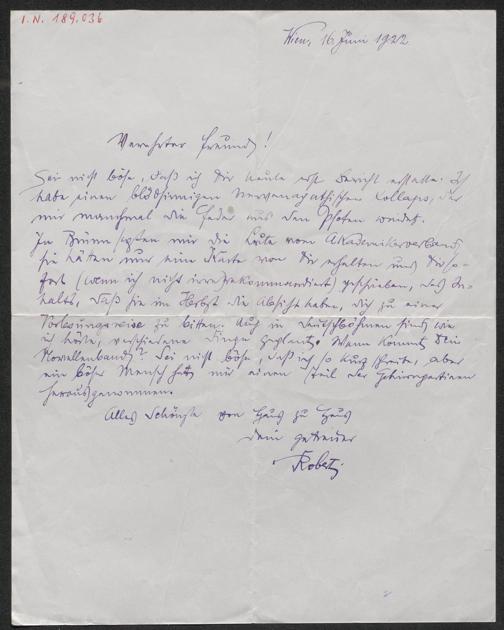 I.N. 189.036
Wien, 16. Juni 1922
Verehrter Freund!
Sei nicht böse, daß ich Dir heute erst Bericht erstatte. Ich
habe einen blödsinnigen Kollaps, der
mir manchmal die Feder aus den Pfoten windet.
In Brünn sagten mir die Leute vom Akademikerverband,
sie hätten nur eine Karte von Dir erhalten und Dir so-
fort (wenn ich nicht irre, rekommandiert) geschrieben, des In-
halts, daß sie im Herbst die Absicht haben, Dich zu einer
Vorlesungsreise zu bitten. Auch in Deutschböhmen sind, wie
ich höre, verschiedene Dinge geplant. Wann kommt Dein
Novellenband? Sei nicht böse, daß ich so kurz schreibe, aber
ein böser Mensch hat mir einen Teil der Gehirnpartieen
herausgenommen.
Alles Schönste von Haus zu Haus
Dein getreuer
Robert